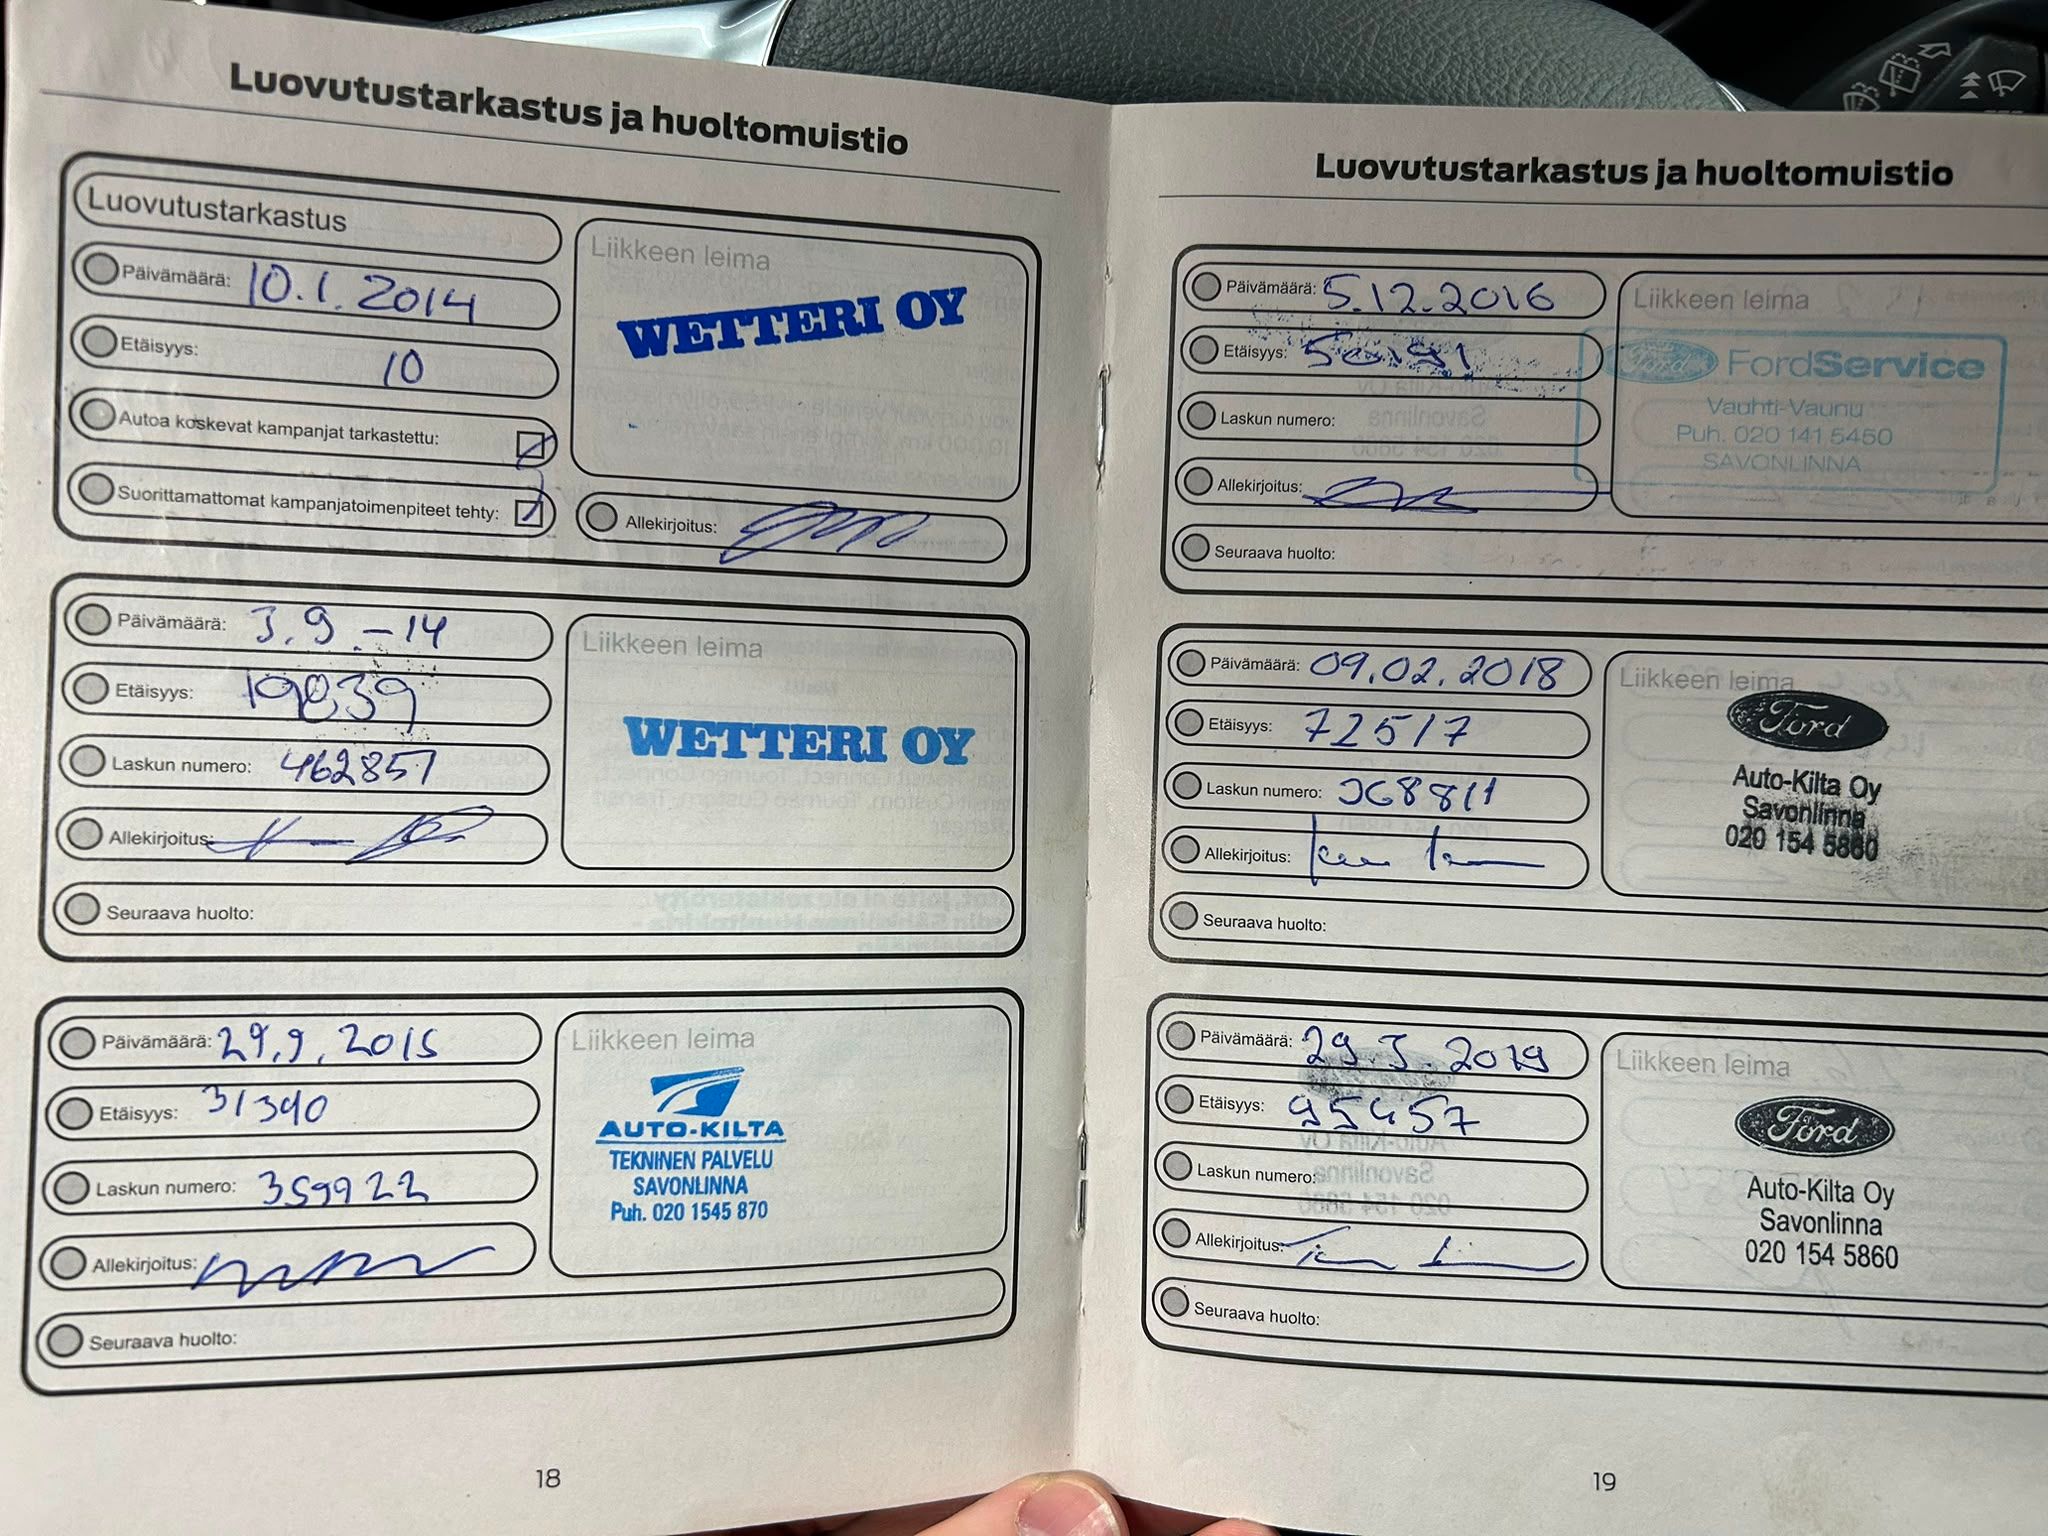 Luovutustarkastus ja huoltomuistio
Luovutustarkastus
Päivämäärä: 10.1.2014
Etäisyys: 10
Autoa koskevat kampanjat tarkastettu:
Suorittamattomat kampanjatoimenpiteet tehty:
Liikkeen leima
WETTERI OY
Allekirjoitus:
Päivämäärä: 3.9.-14
Etäisyys: 19039
Laskun numero: 462857
Allekirjoitus:
Seuraava huolto:
Liikkeen leima
WETTERI OY
Päivämäärä: 29.9.2015
Etäisyys: 31390
Laskun numero: 359922
Allekirjoitus:
Seuraava huolto:
Liikkeen leima
AUTO-KILTA
TEKNINEN PALVELU
SAVONLINNA
Puh. 020 1545 870
18
Luovutustarkastus ja huoltomuistio
Päivämäärä: 5.12.2016
Etäisyys: 50191
Laskun numero:
Allekirjoitus:
Seuraava huolto:
Liikkeen leima
Ford FordService
Vauhti-Vaunu
Puh. 020 141 5450
SAVONLINNA
Päivämäärä: 09.02.2018
Etäisyys: 72517
Laskun numero:
Allekirjoitus:
Seuraava huolto:
Liikkeen leima
Ford
Auto-Kilta Oy
Savonlinna
020 154 5860
Päivämäärä: 29.3.2019
Etäisyys: 95457
Laskun numero:
Allekirjoitus:
Seuraava huolto:
Liikkeen leima
Ford
Auto-Kilta Oy
Savonlinna
020 154 5860
19